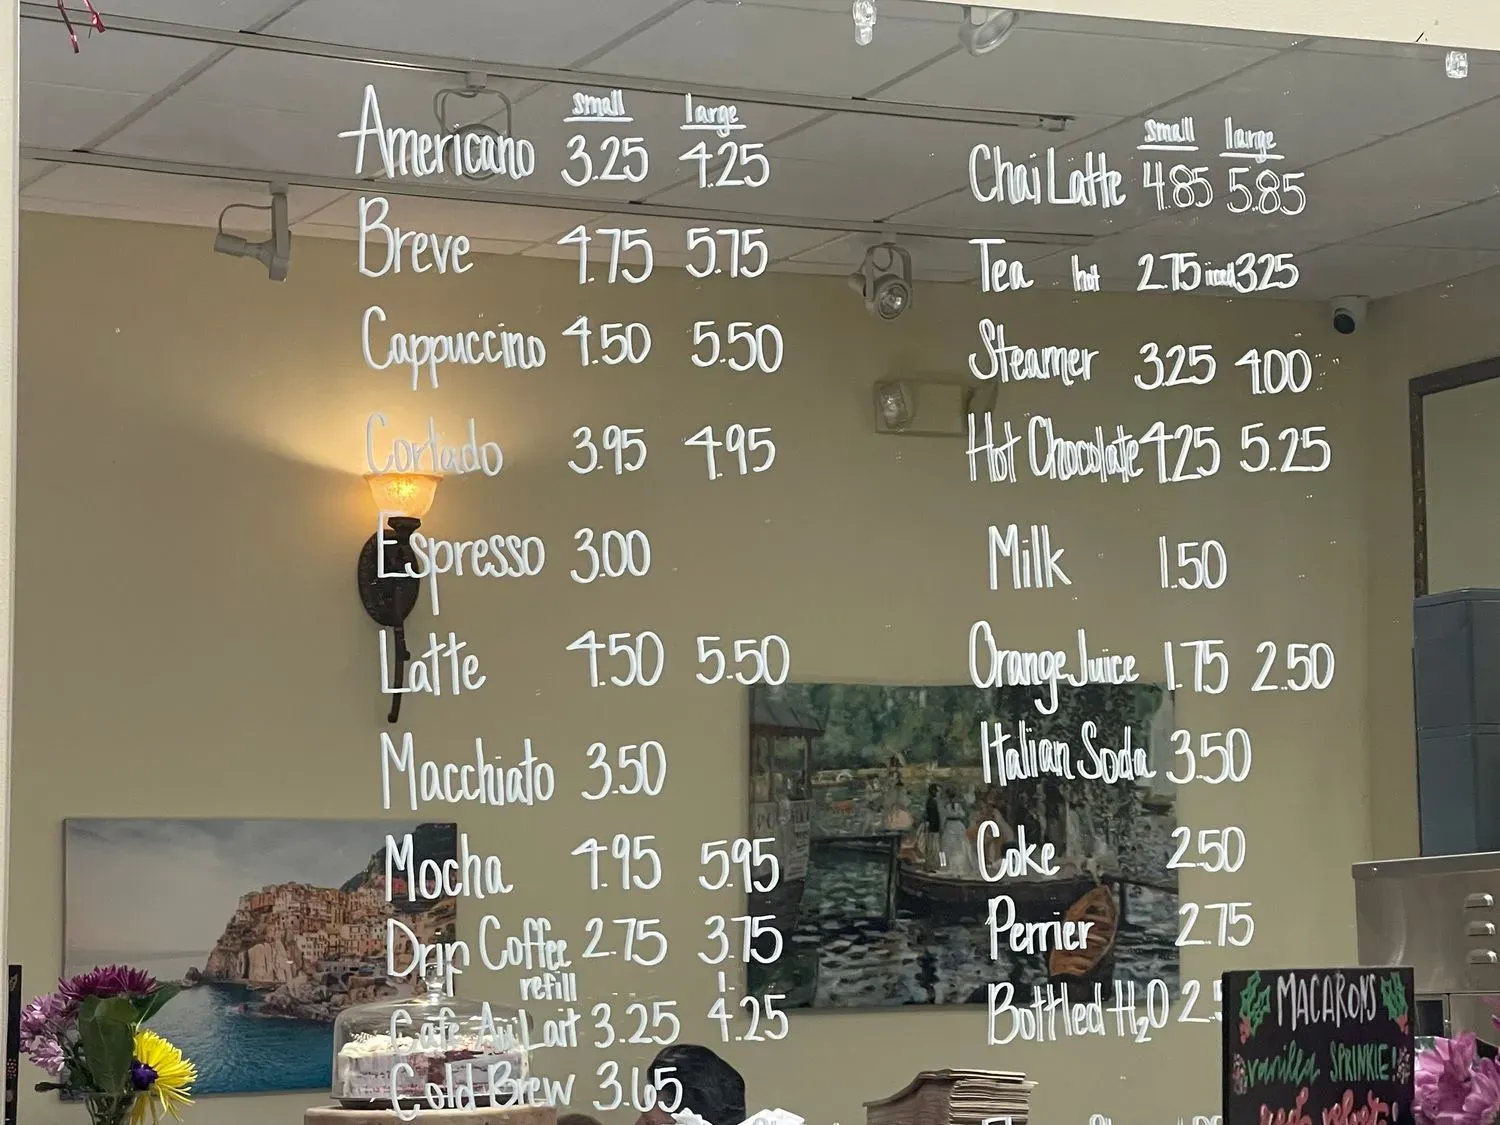 small large
Americano 3.25 4.25
Breve 4.75 5.75
Cappuccino 4.50 5.50
Cortado 3.95 4.95
Espresso 3.00
Latte 4.50 5.50
Macchiato 3.50
Mocha 4.95 5.95
Drip Coffee 2.75 3.75
refill 1.
Café Au Lait 3.25 4.25
Cold Brew 3.65
small large
Chai Latte 4.85 5.85
Tea hot 2.75 iced 3.25
Steamer 3.25 4.00
Hot Chocolate 4.25 5.25
Milk 1.50
Orange Juice 1.75 2.50
Italian Soda 3.50
Coke 2.50
Perrier 2.75
Bottled H₂O 2.5
MACARONS
vanilla SPRINKLE!
red velvet!